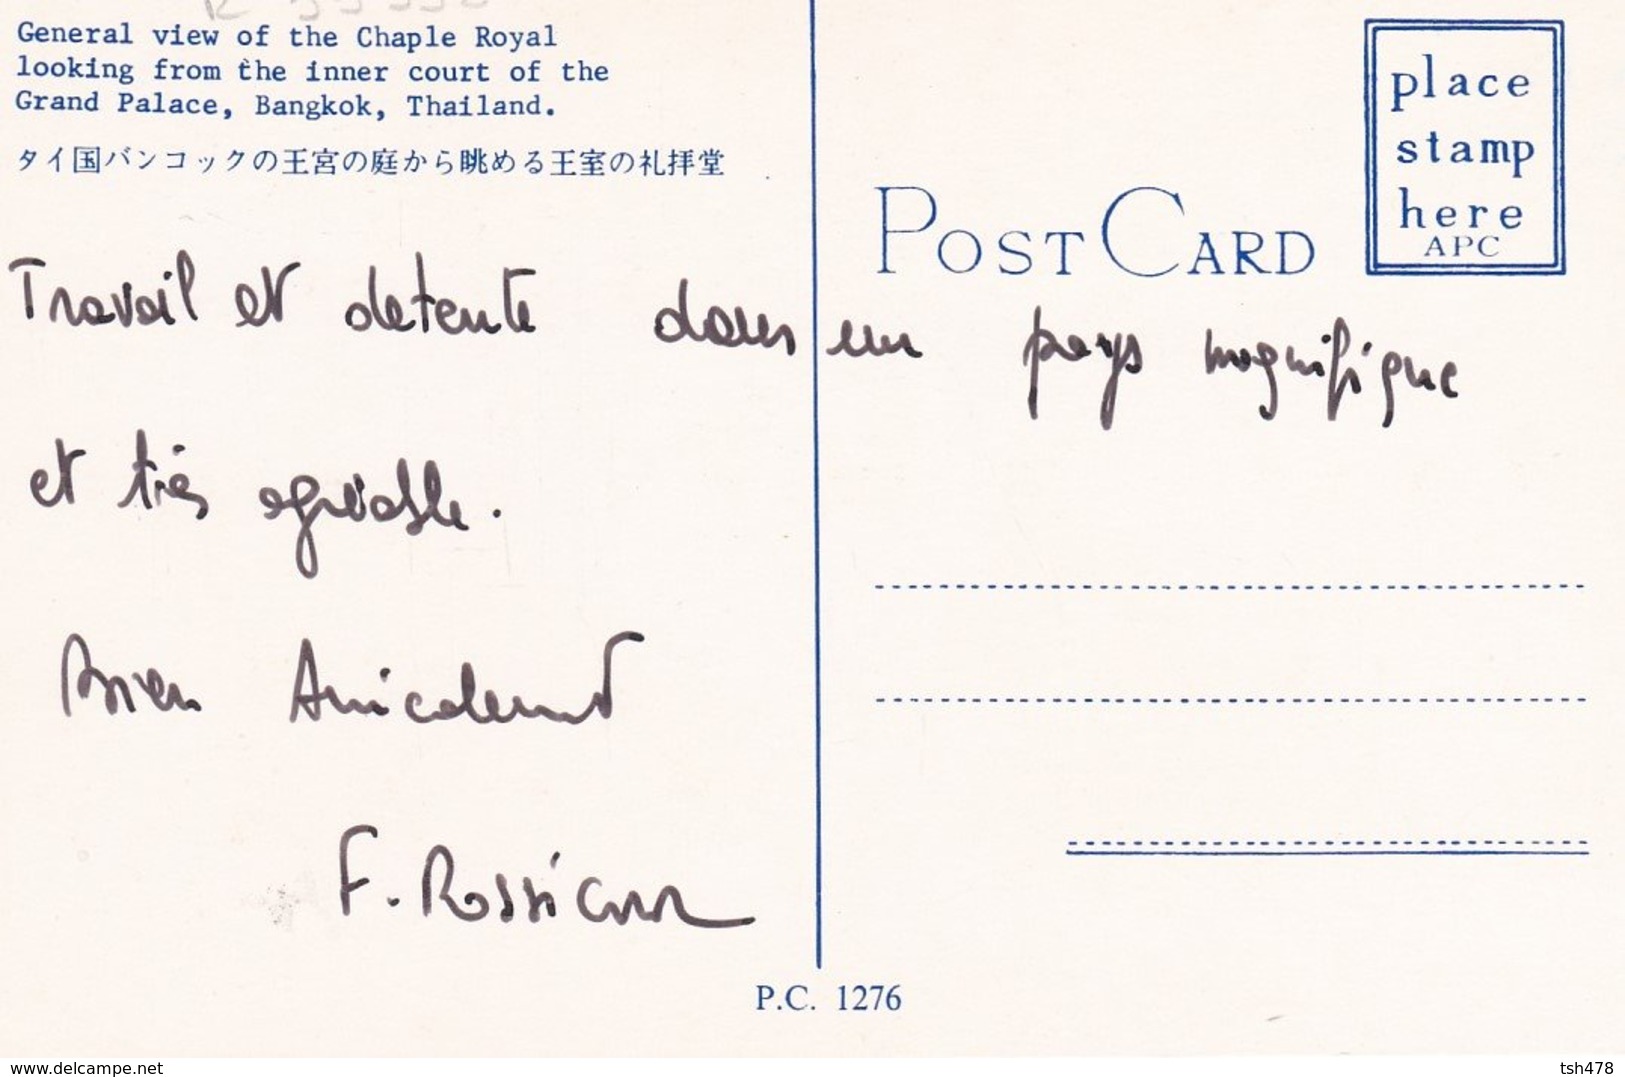 General view of the Chaple Royal
looking from the inner court of the
Grand Palace, Bangkok, Thailand.
タイ国バンコックの王宮の庭から眺める王室の礼拝堂
place
stamp
here
APC
POST CARD
Travail et detente dans un pays magnifique
et très agréable.
Bien Amicalement
F.
P.C. 1276
www.delcampe.net
tsh478